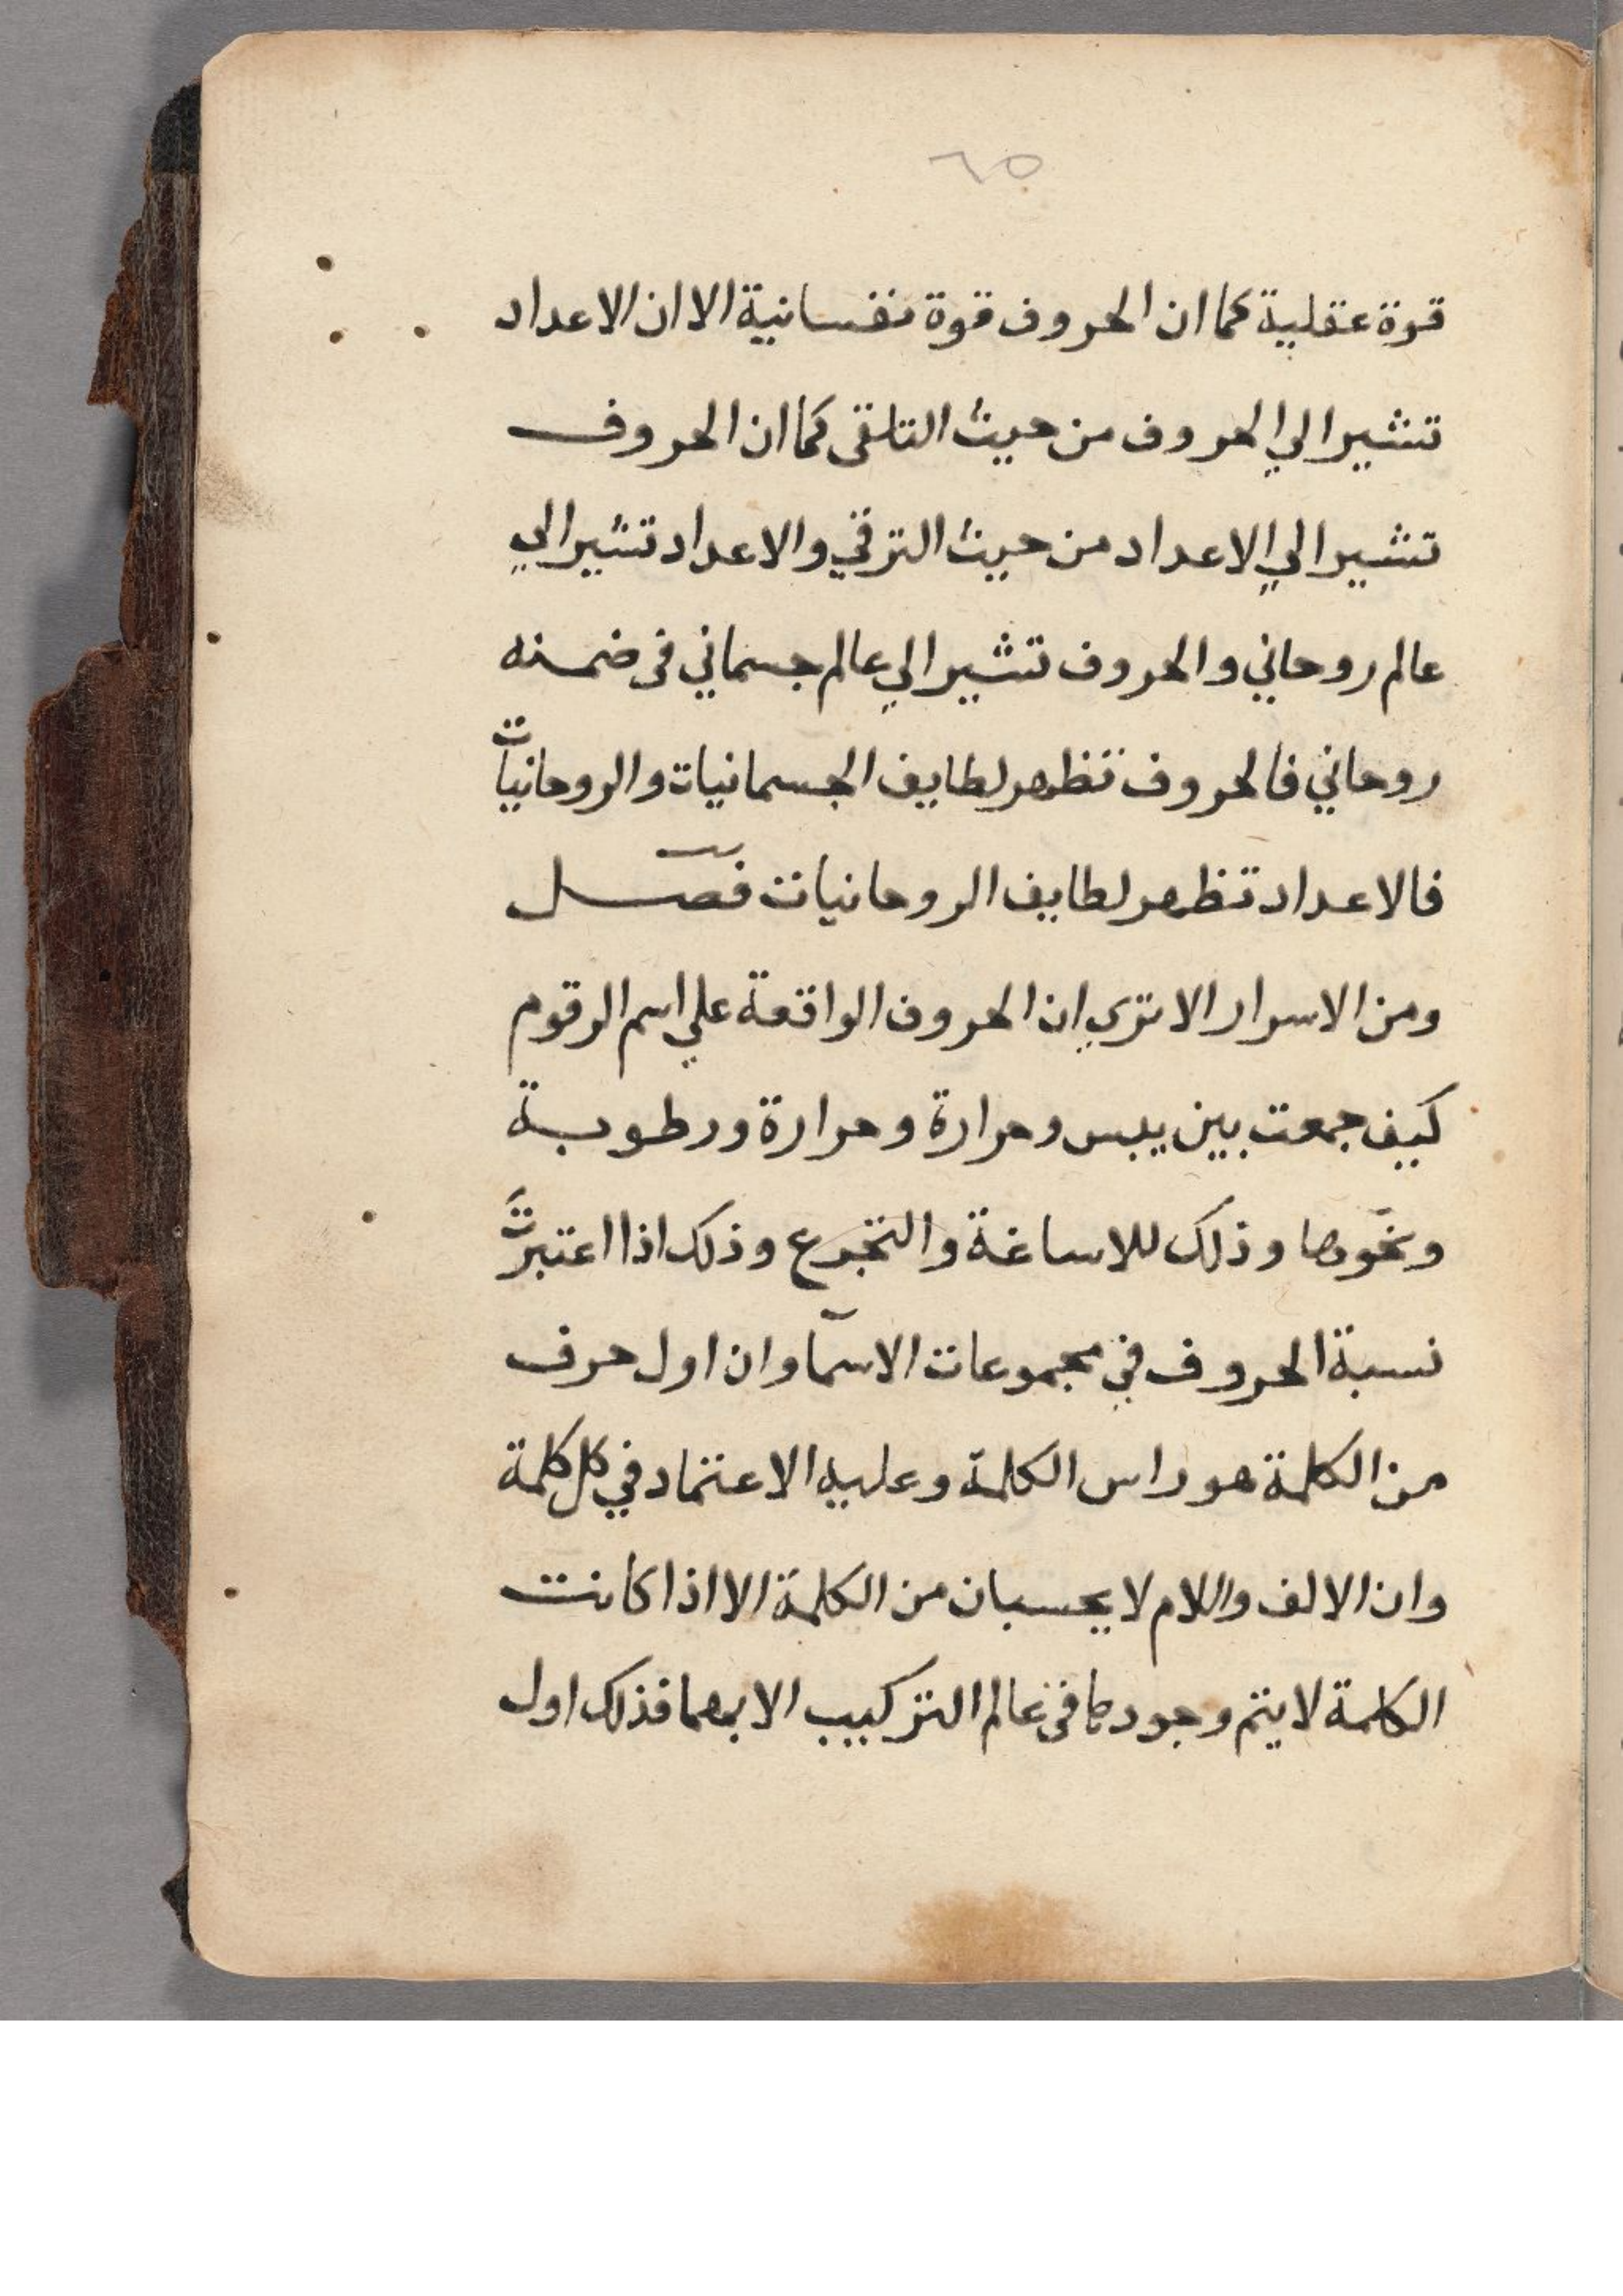 ٦٥
قوة عقلية كما ان الحروف قوة نفسانية الا ان الاعداد
تشير الي الحروف من حيث التلقى كما ان الحروف
تشير الي الاعداد من حيث الترقي والاعداد تشير الي
عالم روحاني والحروف تشير الي عالم جسماني فى ضمنه
روحاني فالحروف تظهر لطايف الجسمانيات والروحانيات
فالاعداد تظهر لطايف الروحانيات فصل
ومن الاسرار الا تري ان الحروف الواقعة علي اسم الرقوم
كيف جمعت بين يبس وحرارة وحرارة ورطوبة
ونحوها وذلك للاساغة والتجرع وذلك اذا اعتبرت
نسبة الحروف في مجموعات الاسمآ وان اول حرف
من الكلمة هو راس الكلمة وعليه الاعتماد في كل كلمة
وان الالف واللام لا يحسبان من الكلمة الا اذا كانت
الكلمة لا يتم وجودها فى عالم التركيب الا بهما فذلك اول